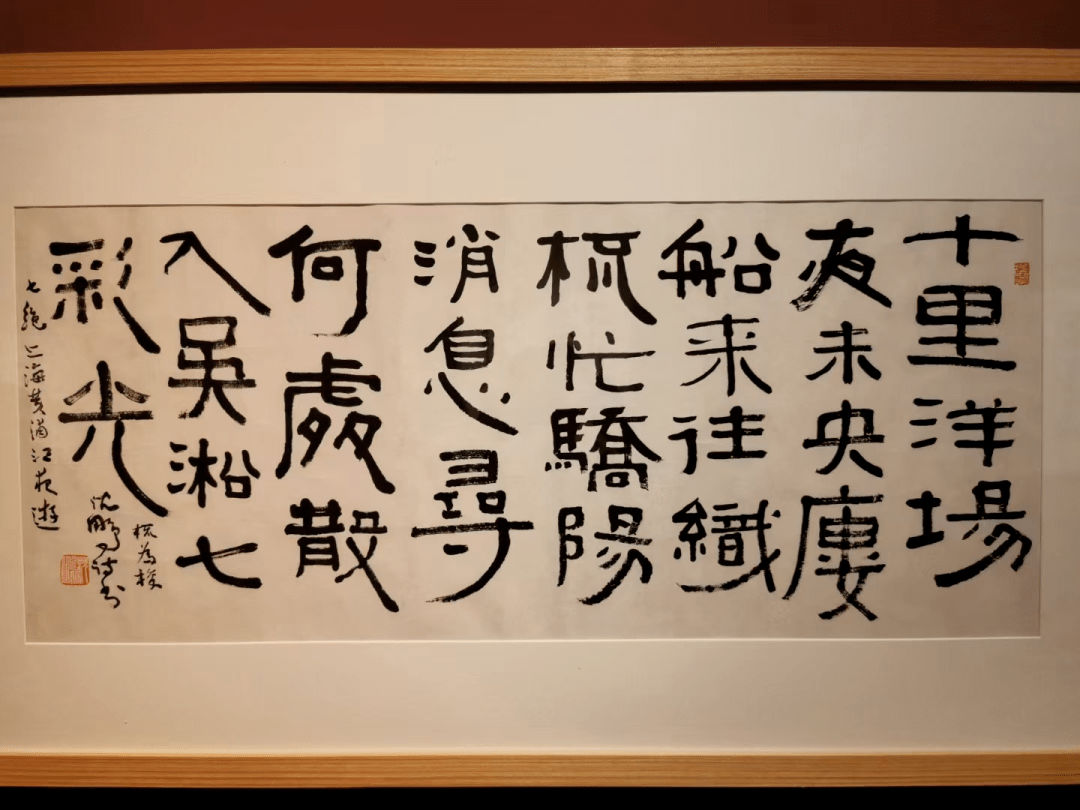 十里洋場
夜未央廔
船来往織
梳忙驕陽
消息尋
何處散
入吳淞七
彩光
七絶 上海黄浦江夜遊
梳為梭
沈鵬詩书